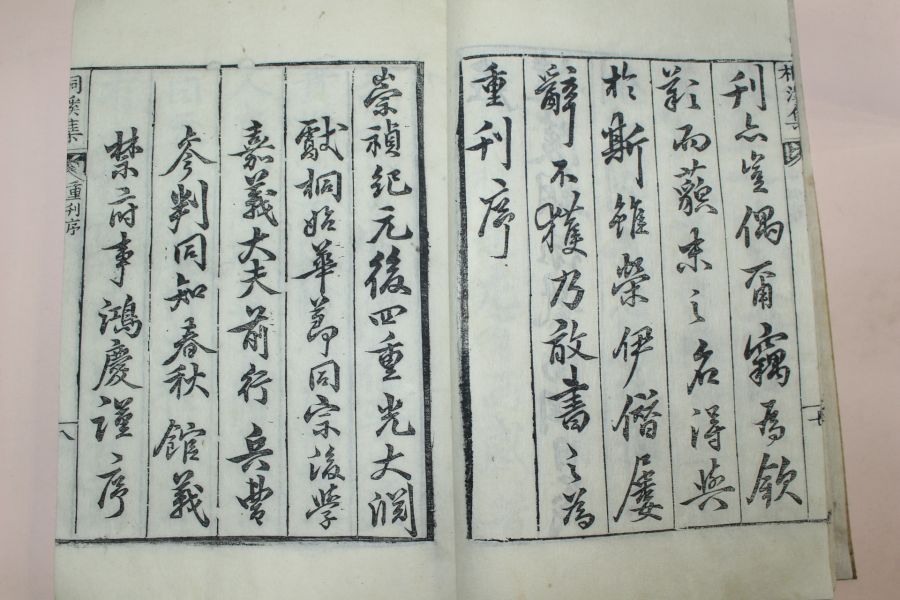 桐溪集
刊亦豈偶爾竊爲欽
歎而藐末之名得與
於斯雖榮伊僭屢
辭不獲乃敢書之爲
重刊序
崇禎紀元後四重光大淵
獻桐始華節同宗後學
嘉義大夫前行兵曹
參判同知春秋館義
禁府事鴻慶謹序
桐溪集
重刊序
八